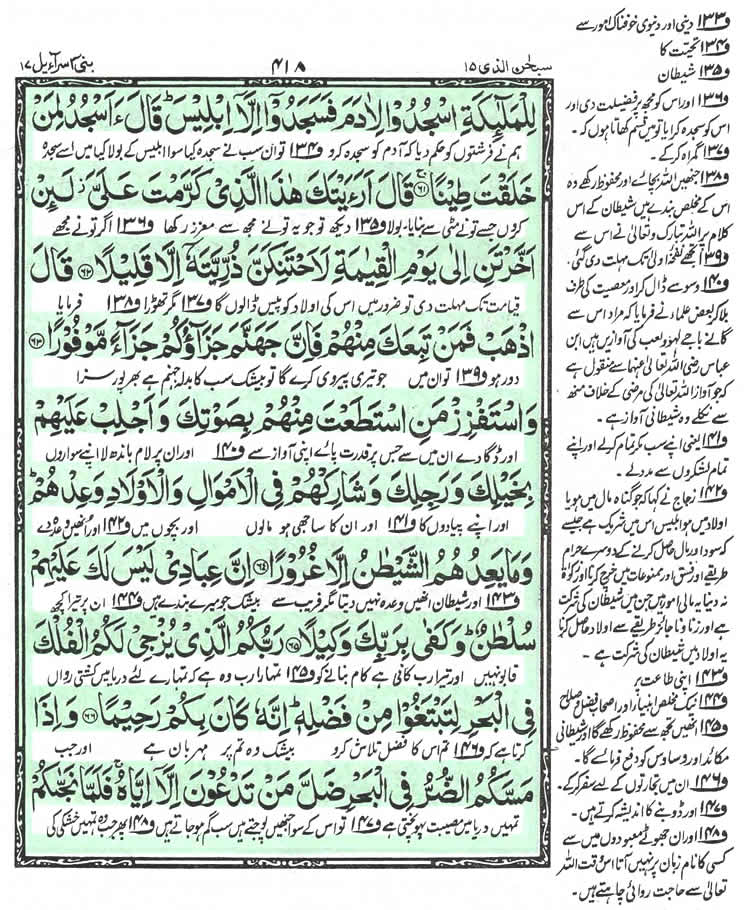 سبحٰن الذی ۱۵
۴۱۸
بنی اسرآءیل ۱۷
لِلْمَلٰٓئِكَةِ اسْجُدُوْا لِاٰدَمَ فَسَجَدُوْۤا اِلَّاۤ اِبْلِیْسَؕ قَالَ ءَاَسْجُدُ لِمَنْ
ہم نے فرشتوں کو حکم دیا کہ آدم کو سجدہ کرو و۱۳۴ تو ان سب نے سجدہ کیا سوا ابلیس کے بولا کیا میں اسے سجدہ
خَلَقْتَ طِیْنًاۚ ﴿۶۱﴾ قَالَ اَرَءَیْتَكَ هٰذَا الَّذِیْ كَرَّمْتَ عَلَیَّ٘ لَىِٕنْ
کروں جسے تونے مٹی سے بنایا بولا و۱۳۵ دیکھ تو جو یہ تونے مجھ سے معزز رکھا و۱۳۶ اگر تونے مجھے
اَخَّرْتَنِ اِلٰی یَوْمِ الْقِیٰمَةِ لَاَحْتَنِكَنَّ ذُرِّیَّتَهٗۤ اِلَّا قَلِیْلًا ﴿۶۲﴾ قَالَ
قیامت تک مہلت دی تو ضرور میں اس کی اولاد کو پیس ڈالوں گا و۱۳۷ مگر تھوڑا و۱۳۸ فرمایا
اذْهَبْ فَمَنْ تَبِعَكَ مِنْهُمْ فَاِنَّ جَهَنَّمَ جَزَآؤُكُمْ جَزَآءً مَّوْفُوْرًا ﴿۶۳﴾
دور ہو و۱۳۹ تو ان میں جو تیری پیروی کرے گا تو بیشک سب کا بدلہ جہنم ہے بھرپور سزا
وَ اسْتَفْزِزْ مَنِ اسْتَطَعْتَ مِنْهُمْ بِصَوْتِكَ وَ اَجْلِبْ عَلَیْهِمْ
اور ڈگا دے ان میں سے جس پر قدرت پائے اپنی آواز سے و۱۴۰ اور ان پر لام باندھ لا اپنے سواروں
بِخَیْلِكَ وَ رَجِلِكَ وَ شَارِكْهُمْ فِی الْاَمْوَالِ وَ الْاَوْلَادِ وَعِدْهُمْؕ
اور اپنے پیادوں کا و۱۴۱ اور ان کا ساجھی ہو مالوں اور بچوں میں و۱۴۲ اور انہیں وعدے
وَ مَا یَعِدُهُمُ الشَّیْطٰنُ اِلَّا غُرُوْرًا ﴿۶۴﴾ اِنَّ عِبَادِیْ لَیْسَ لَكَ عَلَیْهِمْ
و۱۴۳ اور شیطان انھیں وعدہ نہیں دیتا مگر فریب سے بیشک جو میرے بندے ہیں و۱۴۴ ان پر تیرا کچھ
سُلْطٰنٌؕ وَ كَفٰی بِرَبِّكَ وَكِیْلًا ﴿۶۵﴾ رَبُّكُمُ الَّذِیْ یُزْجِیْ لَكُمُ الْفُلْكَ
قابو نہیں اور تیرا رب کافی ہے کام بنانے کو و۱۴۵ تمہارا رب وہ ہے کہ تمہارے لئے دریا میں کشتی رواں
فِی الْبَحْرِ لِتَبْتَغُوْا مِنْ فَضْلِهٖؕ اِنَّهٗ كَانَ بِكُمْ رَحِیْمًا ﴿۶۶﴾ وَ اِذَا
کرتا ہے کہ و۱۴۶ تم اس کا فضل تلاش کرو بیشک وہ تم پر مہربان ہے اور جب
مَسَّكُمُ الضُّرُّ فِی الْبَحْرِ ضَلَّ مَنْ تَدْعُوْنَ اِلَّاۤ اِیَّاهُۚ فَلَمَّا نَجّٰىكُمْ
تمہیں دریا میں مصیبت پہونچتی ہے و۱۴۷ تو اس کے سوا جنھیں پوجتے ہیں سب گم ہو جاتے ہیں و۱۴۸ پھر جب وہ تمہیں خشکی کی
و۱۳۳ دینی اور دنیوی خوفناک امور سے
و۱۳۴ تحیت کا
و۱۳۵ شیطان
و۱۳۶ اور اس کو مجھ پر فضیلت دی اور
اس کو سجدہ کرایا تو میں قسم کھاتا ہوں کہ ۔
و۱۳۷ گمراہ کر کے ۔
و۱۳۸ جنھیں اللہ بچائے اور محفوظ رکھے وہ
اس کے مخلص بندے ہیں شیطان کے اس
کلام پر اللہ تبارک و تعالیٰ نے اس سے
و۱۳۹ تجھے نفخۂ اولیٰ تک مہلت دی گئی ۔
و۱۴۰ وسوسے ڈال کر اور معصیت کی طرف
بلا کر بعض علماء نے فرمایا کہ مراد اس سے
گانے باجے لہو و لعب کی آوازیں ہیں ابن
عباس رضی اللہ تعالیٰ عنہما سے منقول ہے
کہ جو آواز اللہ تعالیٰ کی مرضی کے خلاف منھ
سے نکلے وہ شیطانی آواز ہے ۔
و۱۴۱ یعنی اپنے سب مکر تمام کر لے اور اپنے
تمام لشکروں سے مدد لے ۔
و۱۴۲ زجاج نے کہا کہ جو گناہ مال میں ہو یا
اولاد میں ہو ابلیس اس میں شریک ہے جیسے
کہ سود اور مال حاصل کرنے کے دوسرے حرام
طریقے اور فسق اور ممنوعات میں خرچ کرنا اور زکوٰۃ
نہ دینا یہ مالی امور ہیں جن میں شیطان کی شرکت
ہے اور زنا و ناجائز طریقے سے اولاد حاصل کرنا
یہ اولاد میں شیطان کی شرکت ہے ۔
و۱۴۳ اپنی طاعت پر
و۱۴۴ نیک مخلص انبیاء اور اصحاب فضل و صلاح
و۱۴۵ انھیں تجھ سے محفوظ رکھے گا اور شیطانی
مکائد اور وساوس کو دفع فرمائے گا ۔
و۱۴۶ ان میں تجارتوں کے لئے سفر کر کے ۔
و۱۴۷ اور ڈوبنے کا اندیشہ کرتے ہیں ۔
و۱۴۸ اور ان جھوٹے معبودوں میں سے
کسی کا نام زبان پر نہیں آتا اس وقت اللہ
تعالیٰ سے حاجت روائی چاہتے ہیں ۔